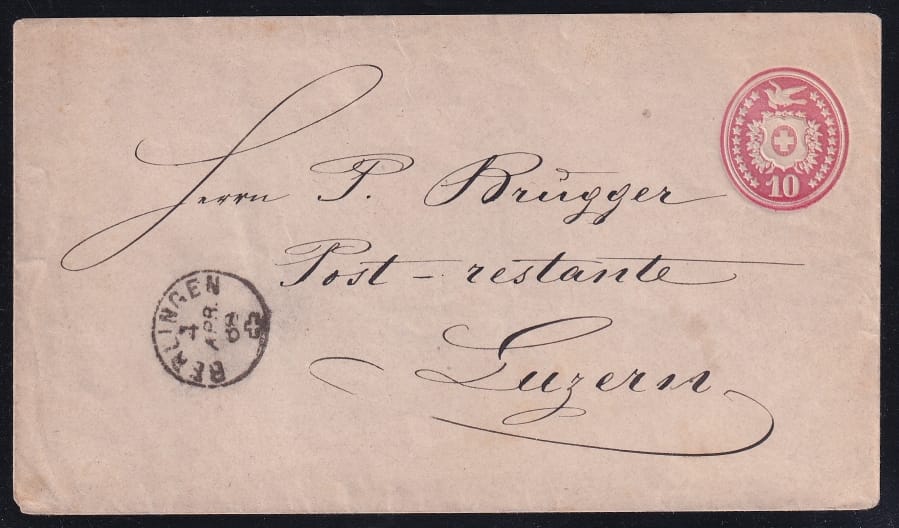 10
Herrn P. Brugger
Post-restante
Luzern
BERLINGEN
APR.